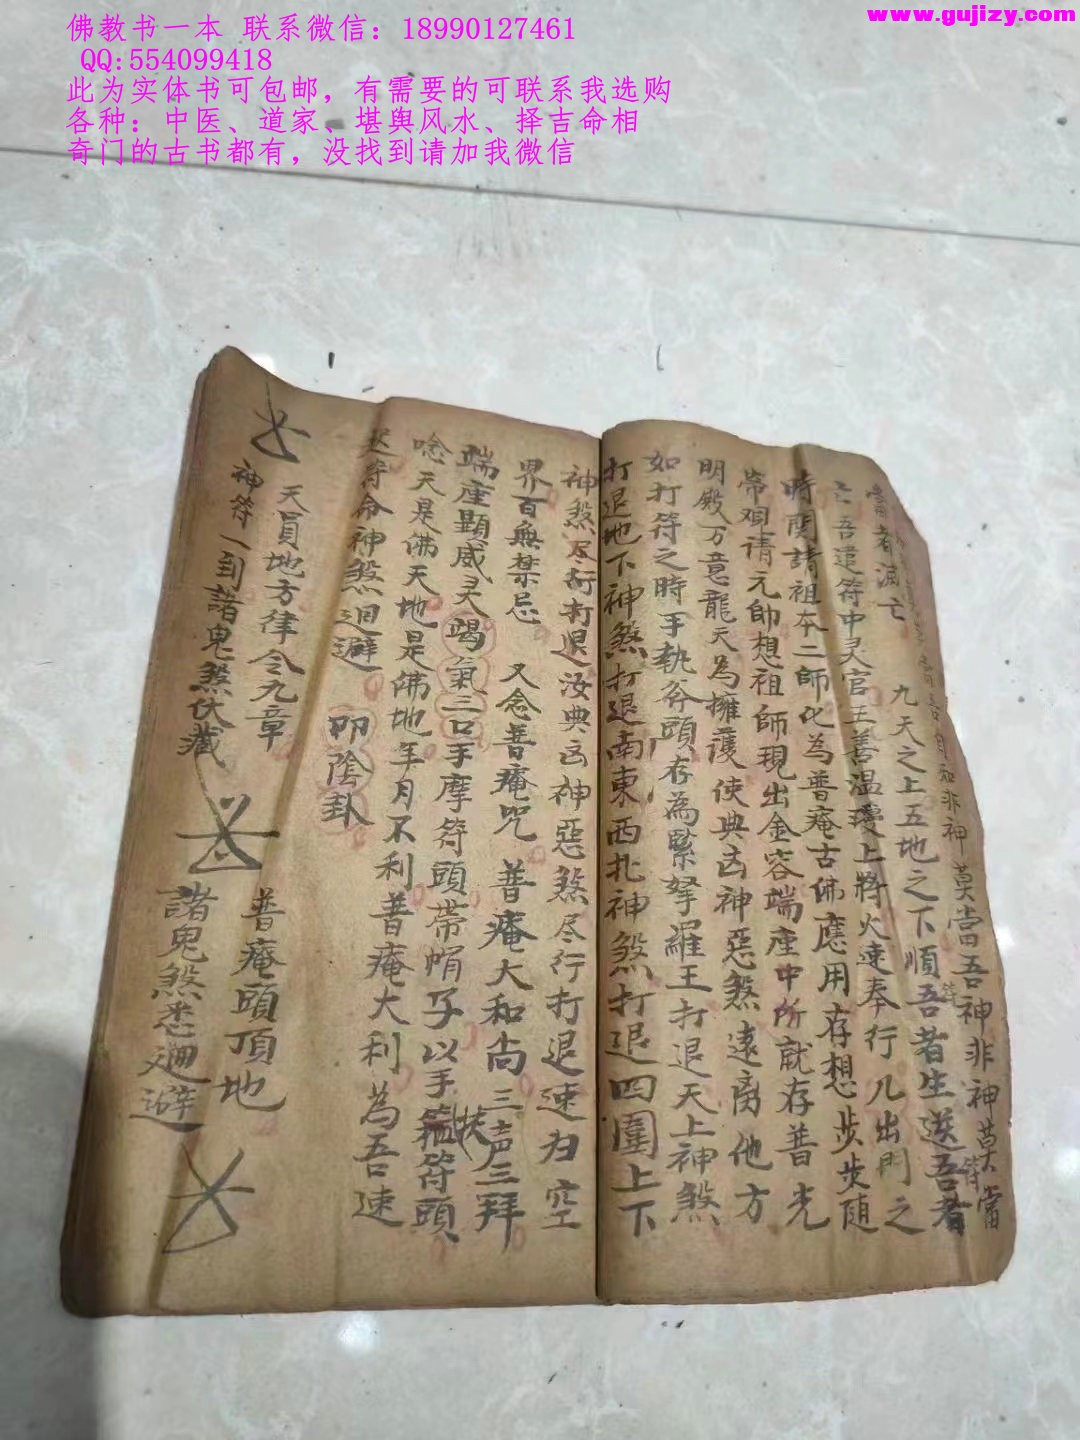 佛教书一本 联系微信：18990127461
QQ:554099418
此为实体书可包邮，有需要的可联系我选购
各种：中医、道家、堪舆风水、择吉命相
奇门的古书都有，没找到请加我微信
www.gujizy.com
非神莫當吾神非神莫當
符 符
當者滅亡 九天之上五地之下順吾者生送吾者
亡吾遣符中灵官王善温瓊上將火速奉行凡出門之
時関請祖本二師化為普庵古佛應用存想步步随
常观请元帥想祖師現出金容端座中所就存普光
明殿万意龍天為擁護使典凶神惡煞遠离他方
如打符之時手執斧頭存為緊拏羅王打退天上神煞
打退地下神煞打退南東西北神煞打退四圍上下
神煞尽行打退汝典凶神惡煞尽行打退速归空
界百無禁忌 又念普庵咒 普庵大和尚三声三拜
端座顯威灵喝氣三口手摩符頭帶帽子以手扶符頭
唸天是佛天地是佛地年月不利普庵大利為吾速
起符命神煞迴避 叩陰卦
天員地方律令九章 普庵頭頂地
神符一到諸鬼煞伏藏 諸鬼煞悉迴避